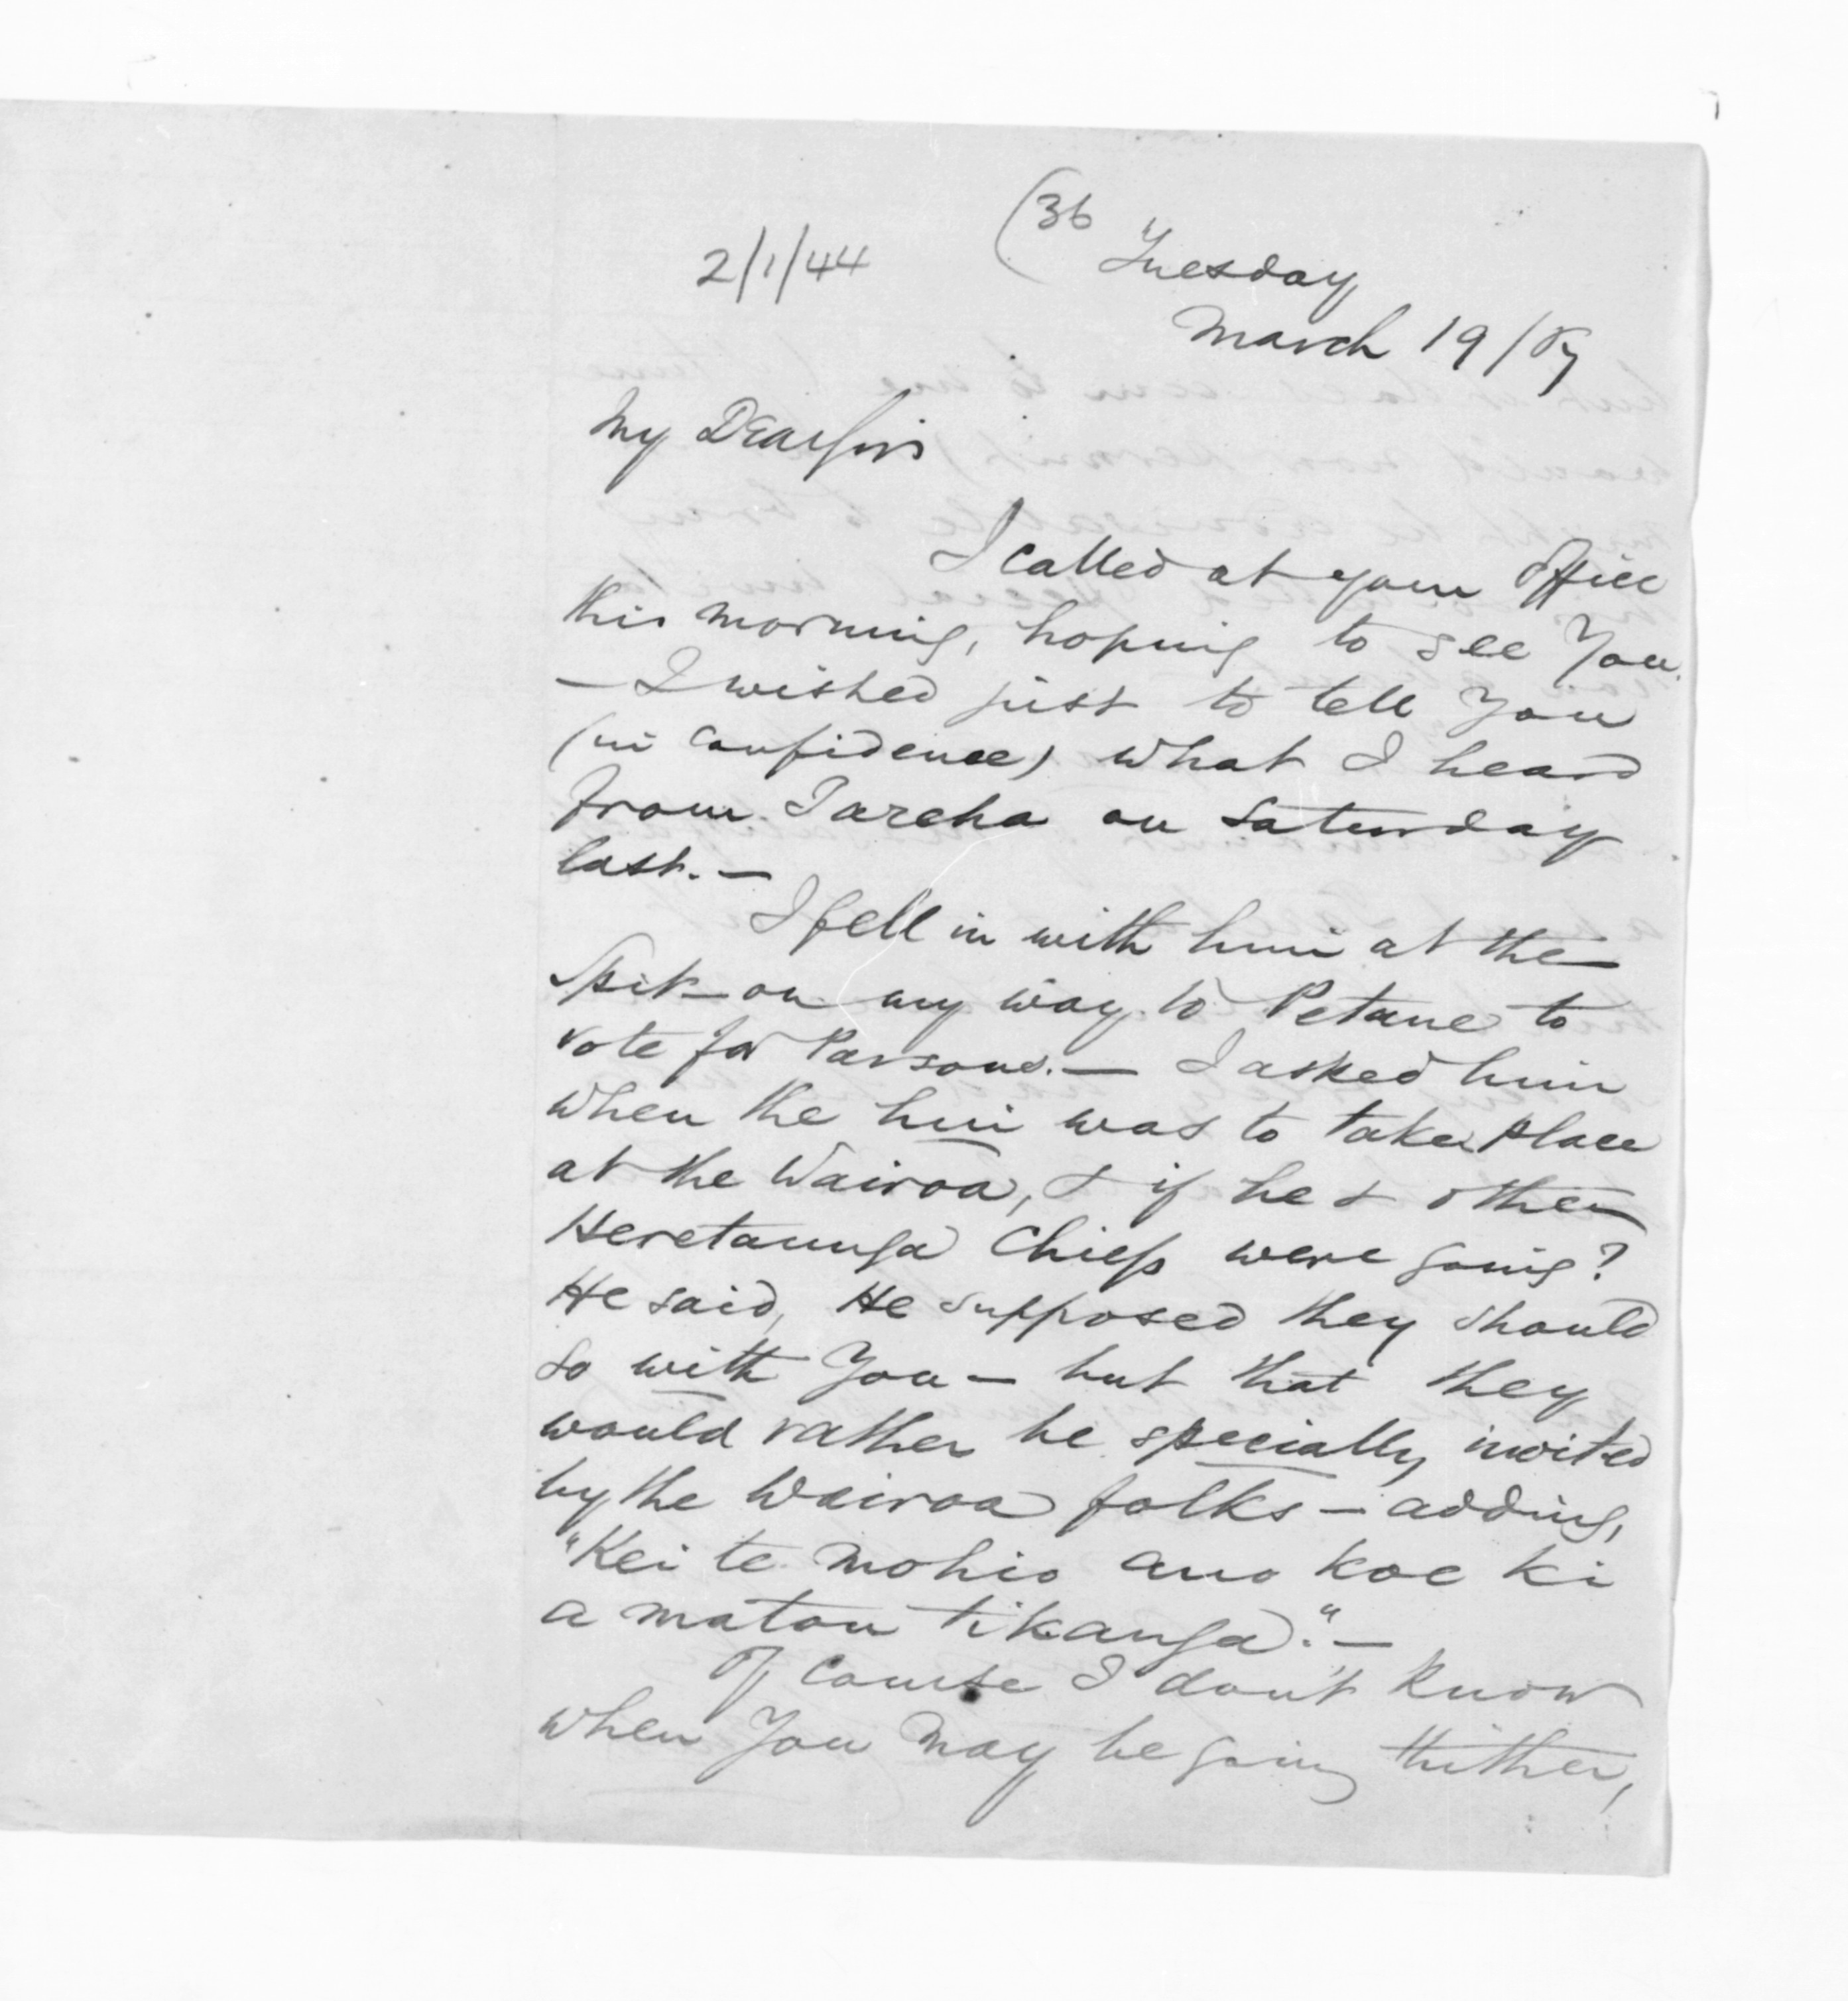 (36
2/1/44
Tuesday
March 19/67
My Dear Sir
I called at your Office
this morning, hoping to see You.
— I wished just to tell You
(in confidence) what I heard
from Tareha on Saturday
last. —
I fell in with him at the
Spit—on my way to Petane to
vote for Parsons. — I asked him
when the hui was to take place
at the Wairoa, & if he & other
Heretaunga Chiefs were going?
He said, He supposed they should
go with You — but that they
would rather be specially invited
by the Wairoa folks — adding,
"Kei te mohio ano koe ki
a matou tikanga." —
Of course I don't know
when You may be going thither,